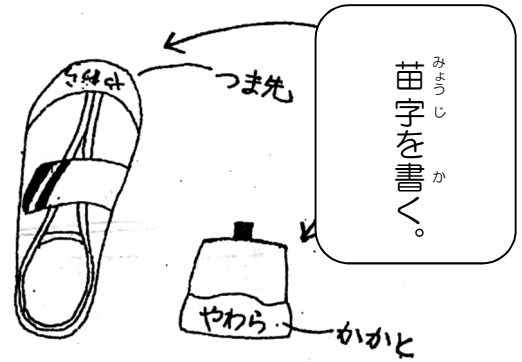 苗字を書く。
みょうじ
か
やわら
つま先
やわら
かかと